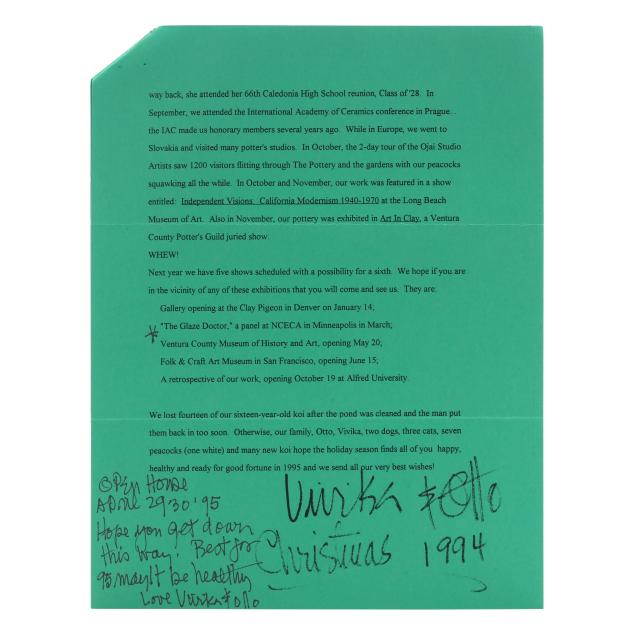 way back, she attended her 66th Caledonia High School reunion, Class of '28. In
September, we attended the International Academy of Ceramics conference in Prague. .
the IAC made us honorary members several years ago. While in Europe, we went to
Slovakia and visited many potter's studios. In October, the 2-day tour of the Ojai Studio
Artists saw 1200 visitors flitting through The Pottery and the gardens with our peacocks
squawking all the while. In October and November, our work was featured in a show
entitled: Independent Visions, California Modernism 1940-1970 at the Long Beach
Museum of Art. Also in November, our pottery was exhibited in Art In Clay, a Ventura
County Potter's Guild juried show.
WHEW!
Next year we have five shows scheduled with a possibility for a sixth. We hope if you are
in the vicinity of any of these exhibitions that you will come and see us. They are:
Gallery opening at the Clay Pigeon in Denver on January 14;
"The Glaze Doctor," a panel at NCECA in Minneapolis in March;
Ventura County Museum of History and Art, opening May 20;
Folk & Craft Art Museum in San Francisco, opening June 15;
A retrospective of our work, opening October 19 at Alfred University.
We lost fourteen of our sixteen-year-old koi after the pond was cleaned and the man put
them back in too soon. Otherwise, our family, Otto, Vivika, two dogs, three cats, seven
peacocks (one white) and many new koi hope the holiday season finds all of you happy,
healthy and ready for good fortune in 1995 and we send all our very best wishes!
Vivika & Otto
Christmas 1994
Open House
April 29 30 '95
Hope you get down
this way. Best for
95 may it be healthy
Love Vivika & Otto